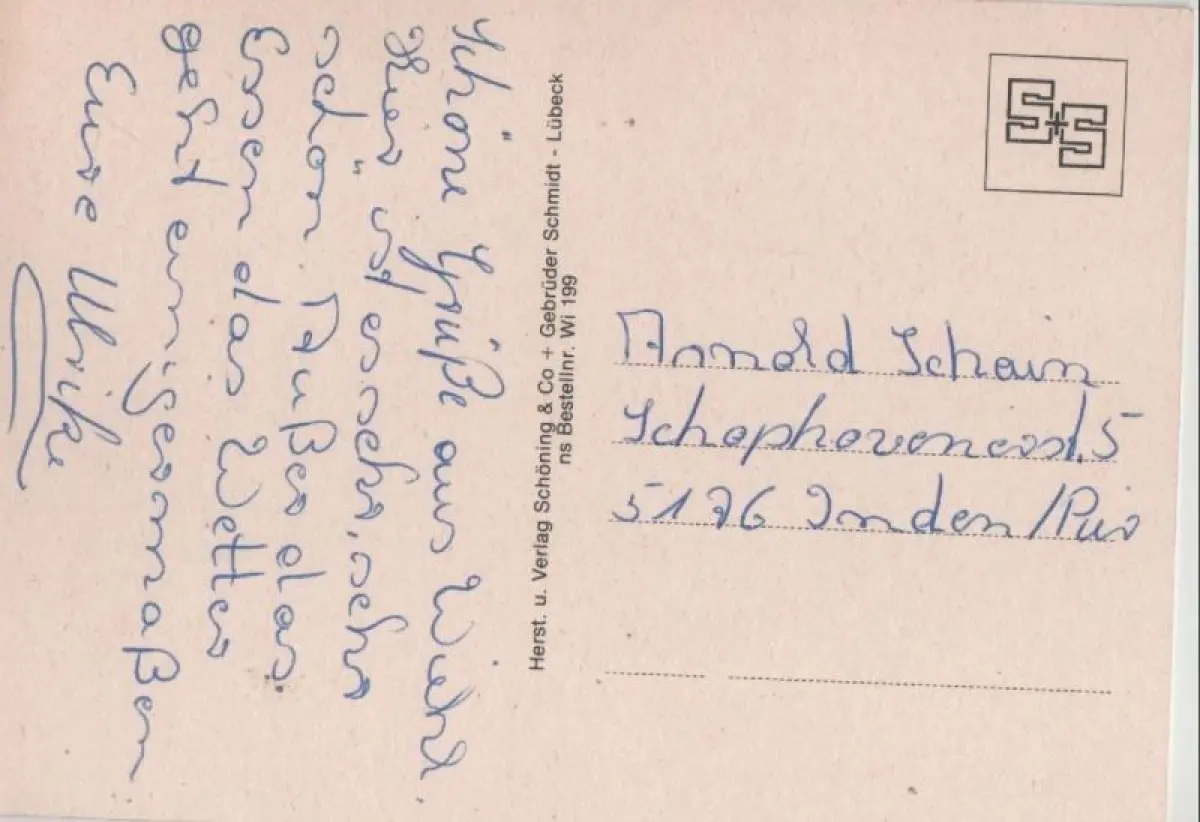 Schöne Grüße aus Wiehl.
Hier ist es sehr, sehr
schön. Außer das
Essen das Wetter
geht einigermaßen
Eure Ulrike
Herst. u. Verlag Schöning & Co + Gebrüder Schmidt - Lübeck
ns Bestellnr. Wi 199
S+S
Arnold Schain
Schophovenerst. 5
5176 Inden/Pier